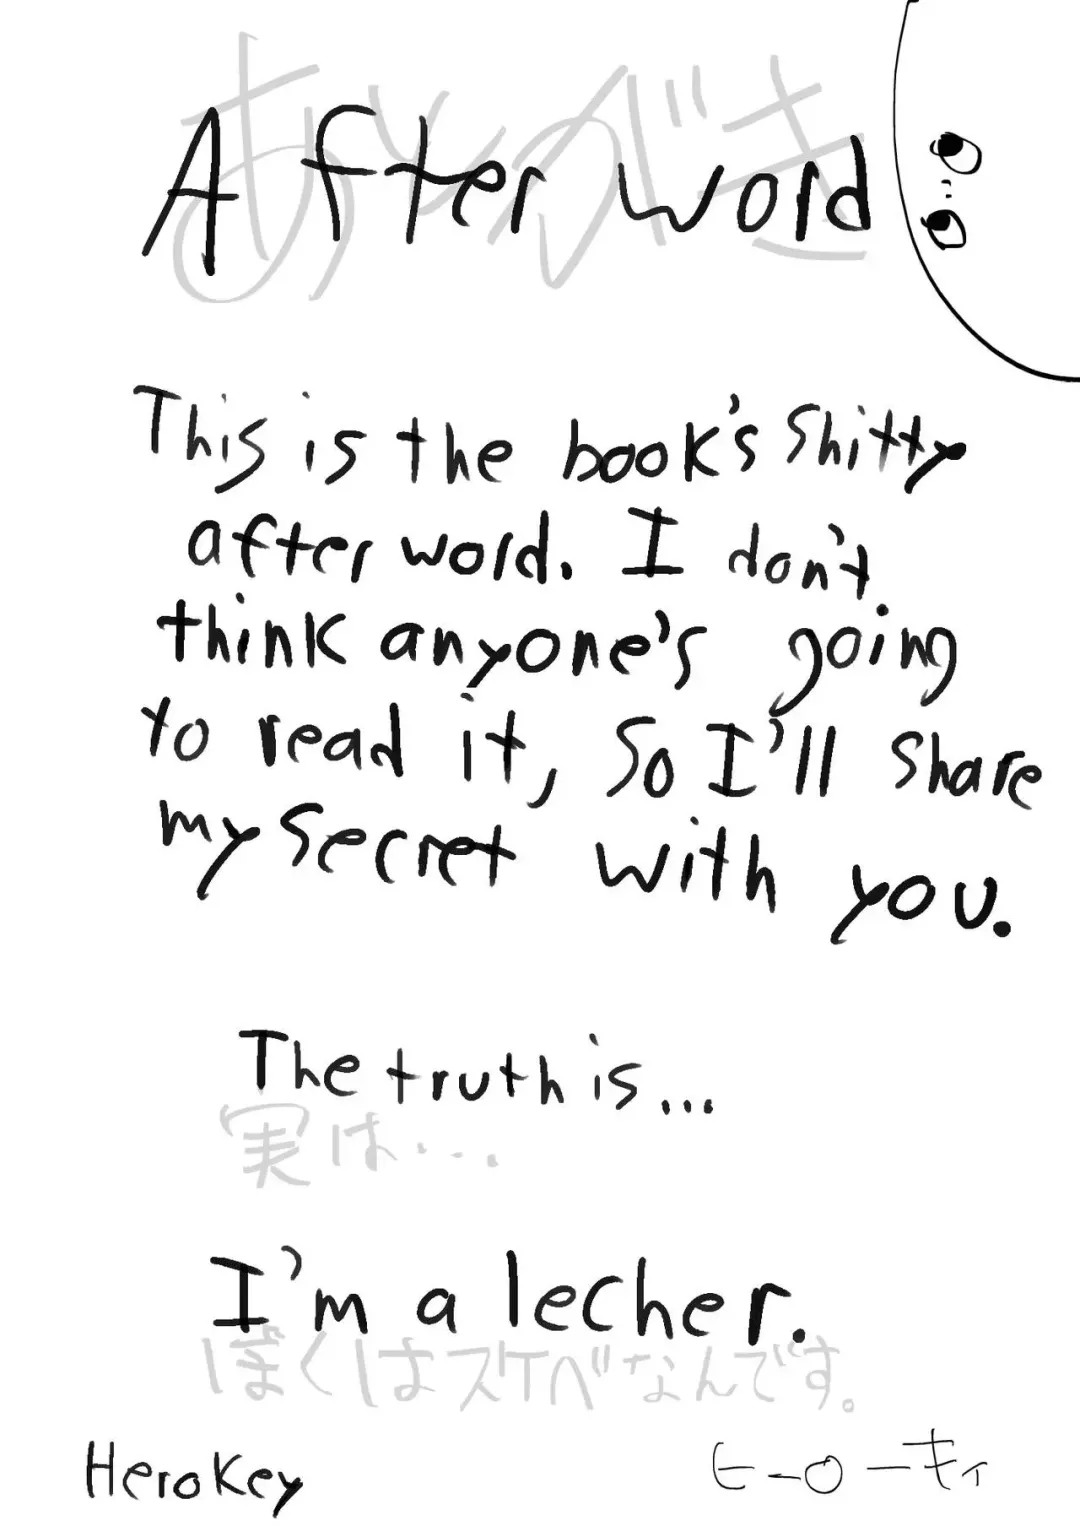 あとがき
After word
This is the book's shitty
after word. I don't
think anyone's going
to read it, so I'll share
my secret with you.
The truth is...
実は...
I'm a lecher.
ぼくはスケベなんです。
HeroKey
ヒーローキィ